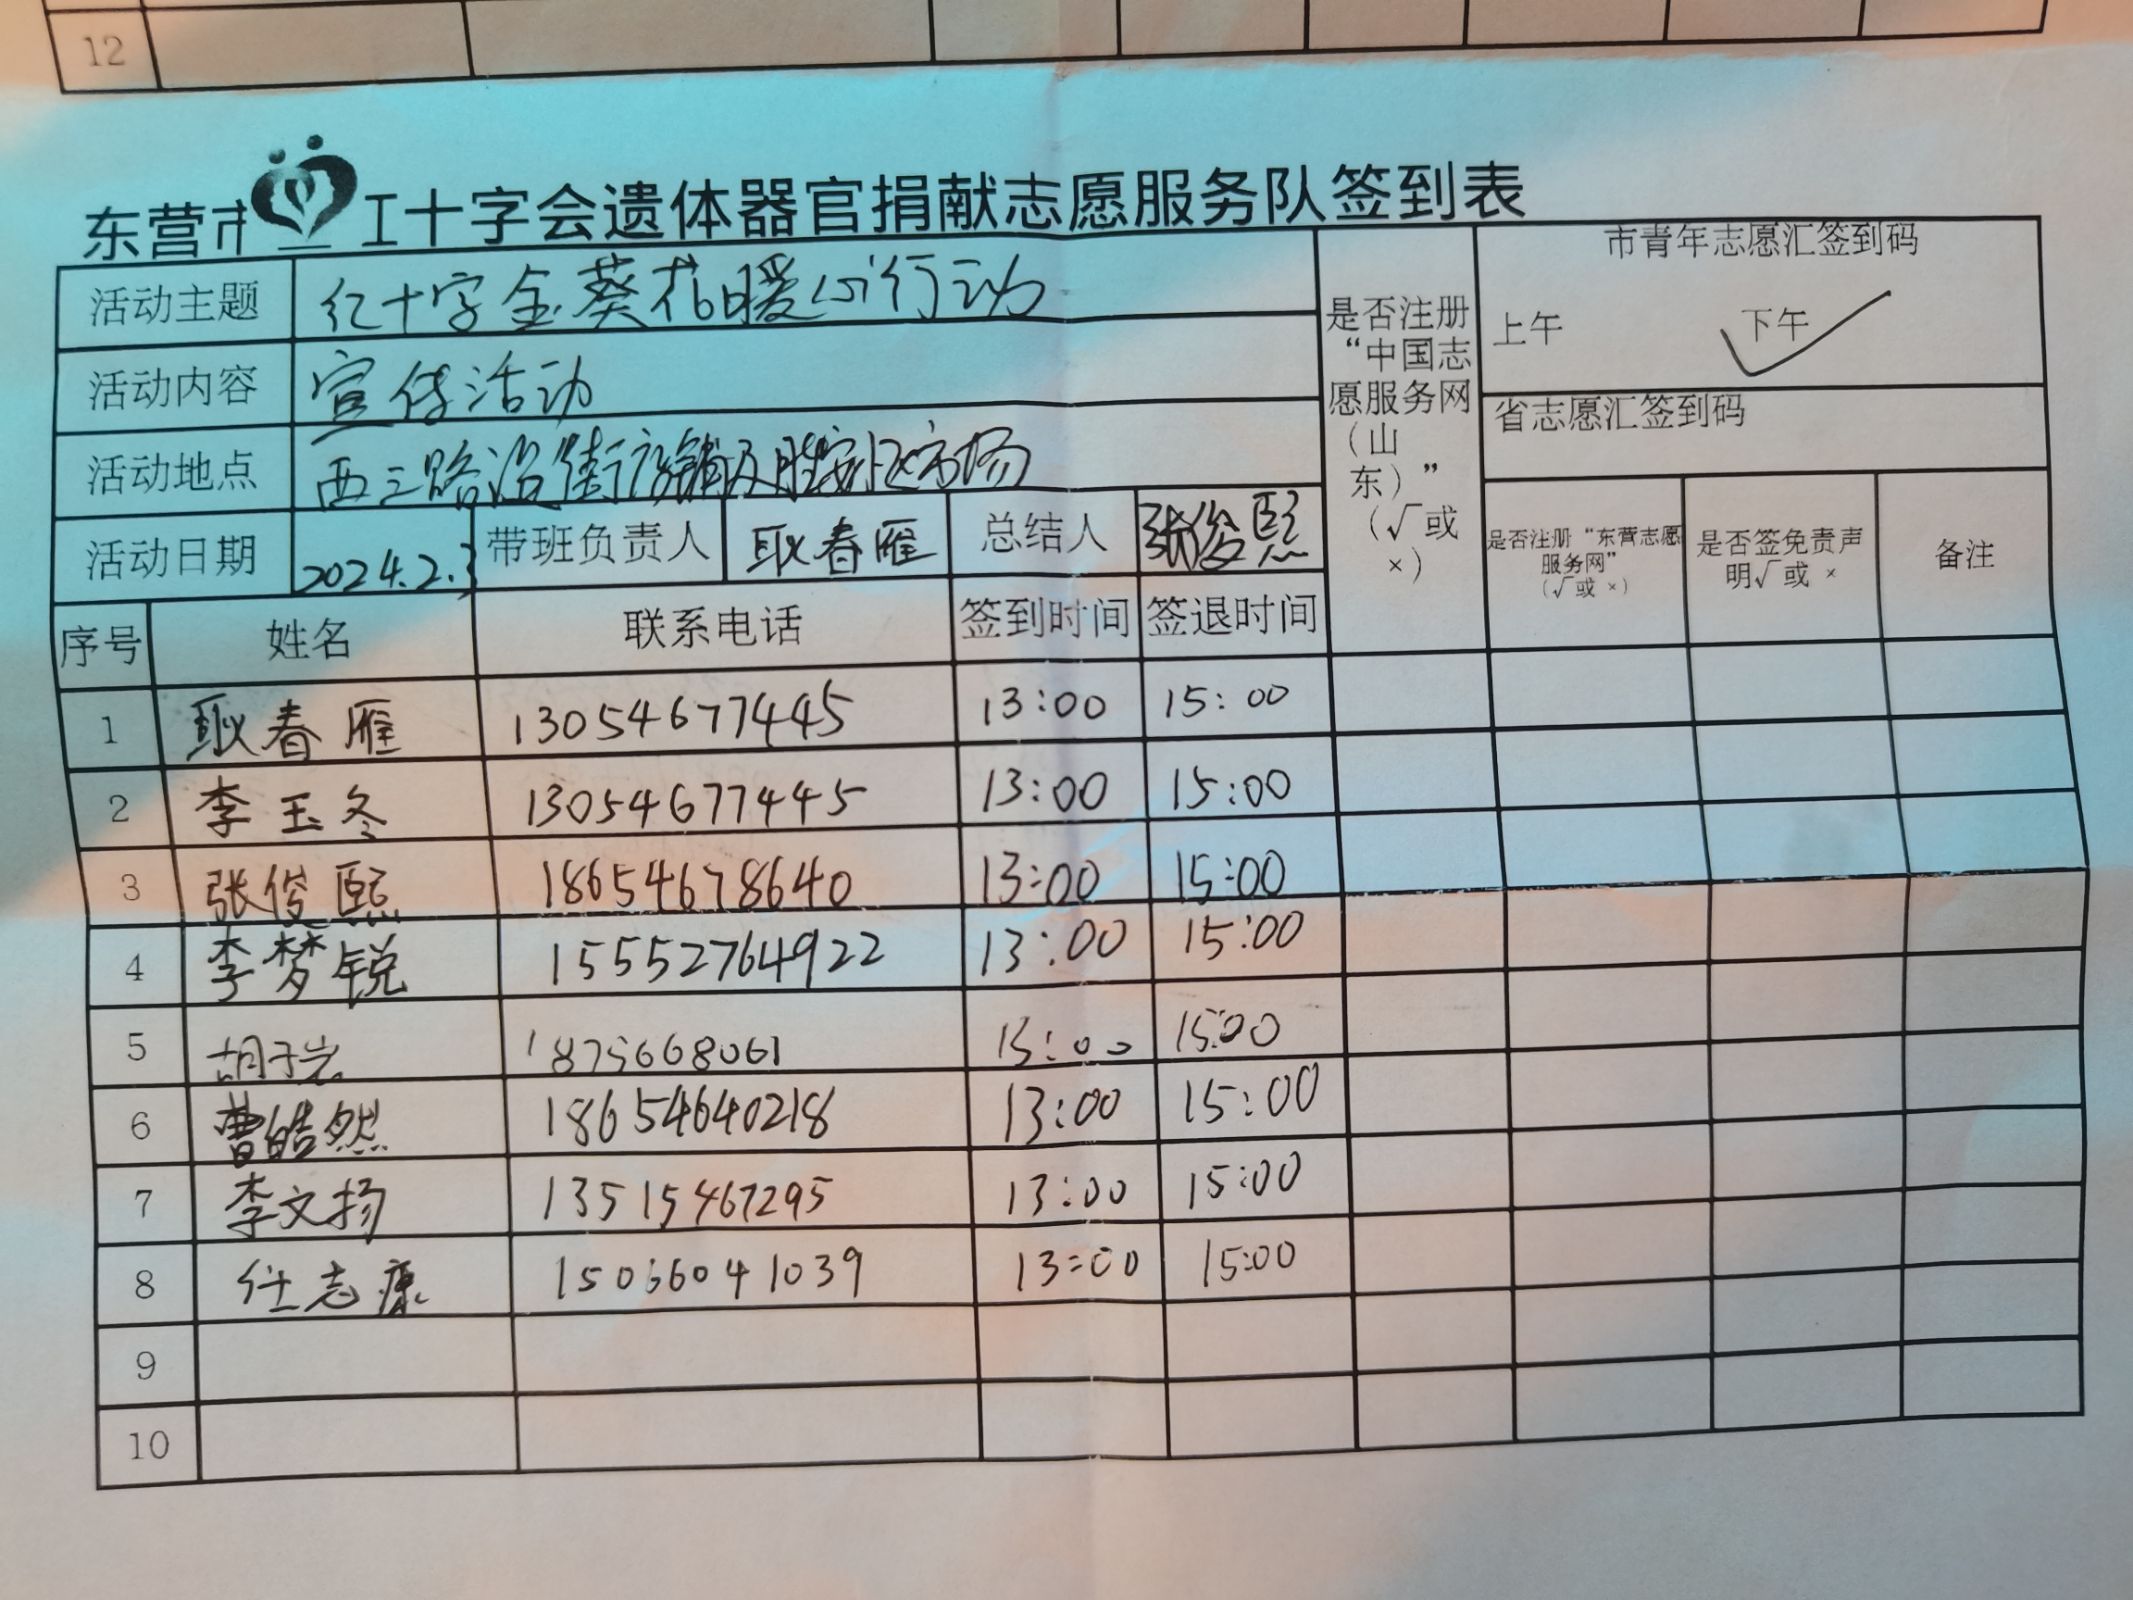 12
东营市红十字会遗体器官捐献志愿服务队签到表
活动主题 红十字金葵花暖心行动
活动内容 宣传活动
活动地点 西三路沿街商铺及胜安小区市场
活动日期 2024.2.3 带班负责人 耿春雁 总结人 张俊熙
是否注册“中国志愿服务网（山东）”（√或×）
市青年志愿汇签到码
上午 下午 ✓
省志愿汇签到码
是否注册“东营志愿服务网”（√或×） 是否签免责声明√或× 备注
序号 姓名 联系电话 签到时间 签退时间
1 耿春雁 13054677445 13:00 15:00
2 李玉冬 13054677445 13:00 15:00
3 张俊熙 18654678640 13:00 15:00
4 李梦锐 15552764922 13:00 15:00
5 胡子岩 1875668061 13:00 15:00
6 曹皓然 18654640218 13:00 15:00
7 李文扬 13515467295 13:00 15:00
8 任志康 15066041039 13:00 15:00
9
10